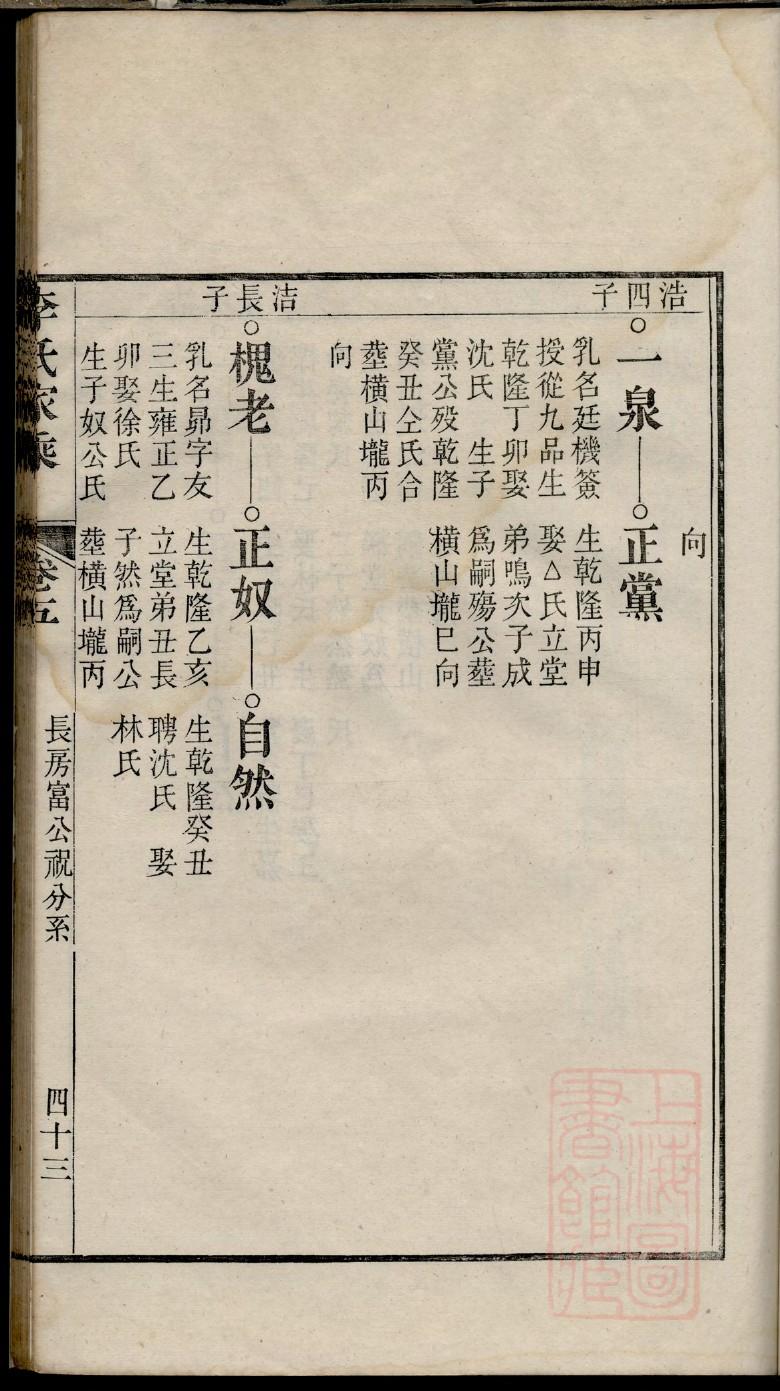 向
浩四子
一泉
乳名廷機簽
授從九品生
乾隆丁卯娶
沈氏　生子
黨公殁乾隆
癸丑仝氏合
塟橫山壠丙
向
正黨
生乾隆丙申
娶△氏立堂
弟鳴次子成
爲嗣殤公塟
橫山壠巳向
洁長子
槐老
乳名昴字友
三生雍正乙
卯娶徐氏
生子奴公氏
正奴
生乾隆乙亥
立堂弟丑長
子然爲嗣公
塟橫山壠丙
自然
生乾隆癸丑
聘沈氏　娶
林氏
李氏家乘
卷五
長房富公祝分系
四十三
上海圖
書館藏